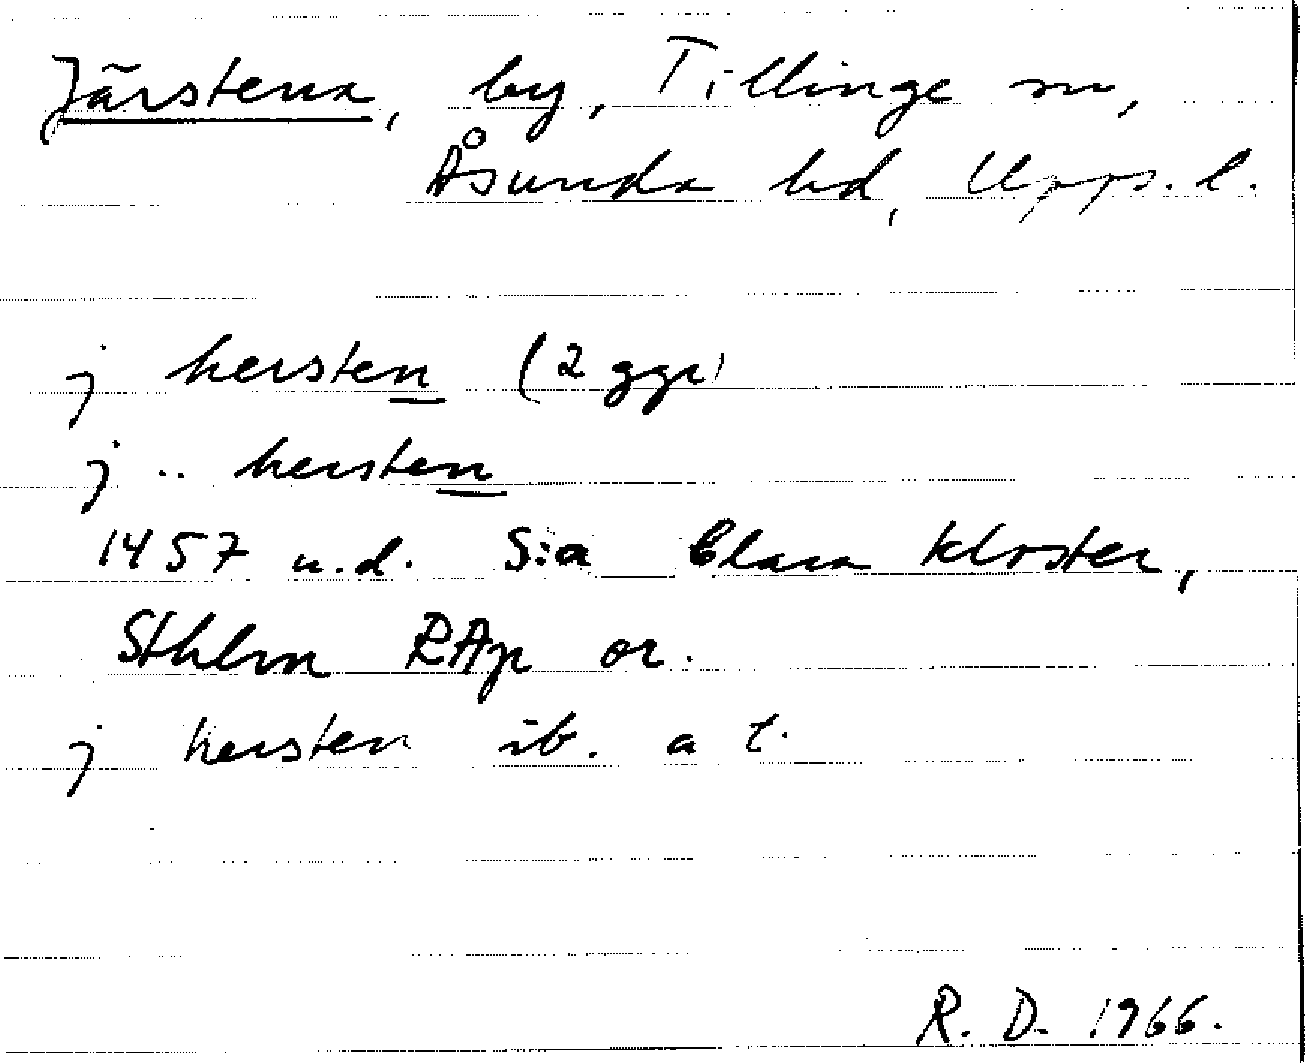 Järstena, by, Tillinge sn,
Åsunda hd, Upps. l.
j hersten (2 ggr)
j .. hersten
1457 u.d. S:a Clara kloster,
Sthlm RAp or.
j hersten ib. a t.
R. D. 1966.